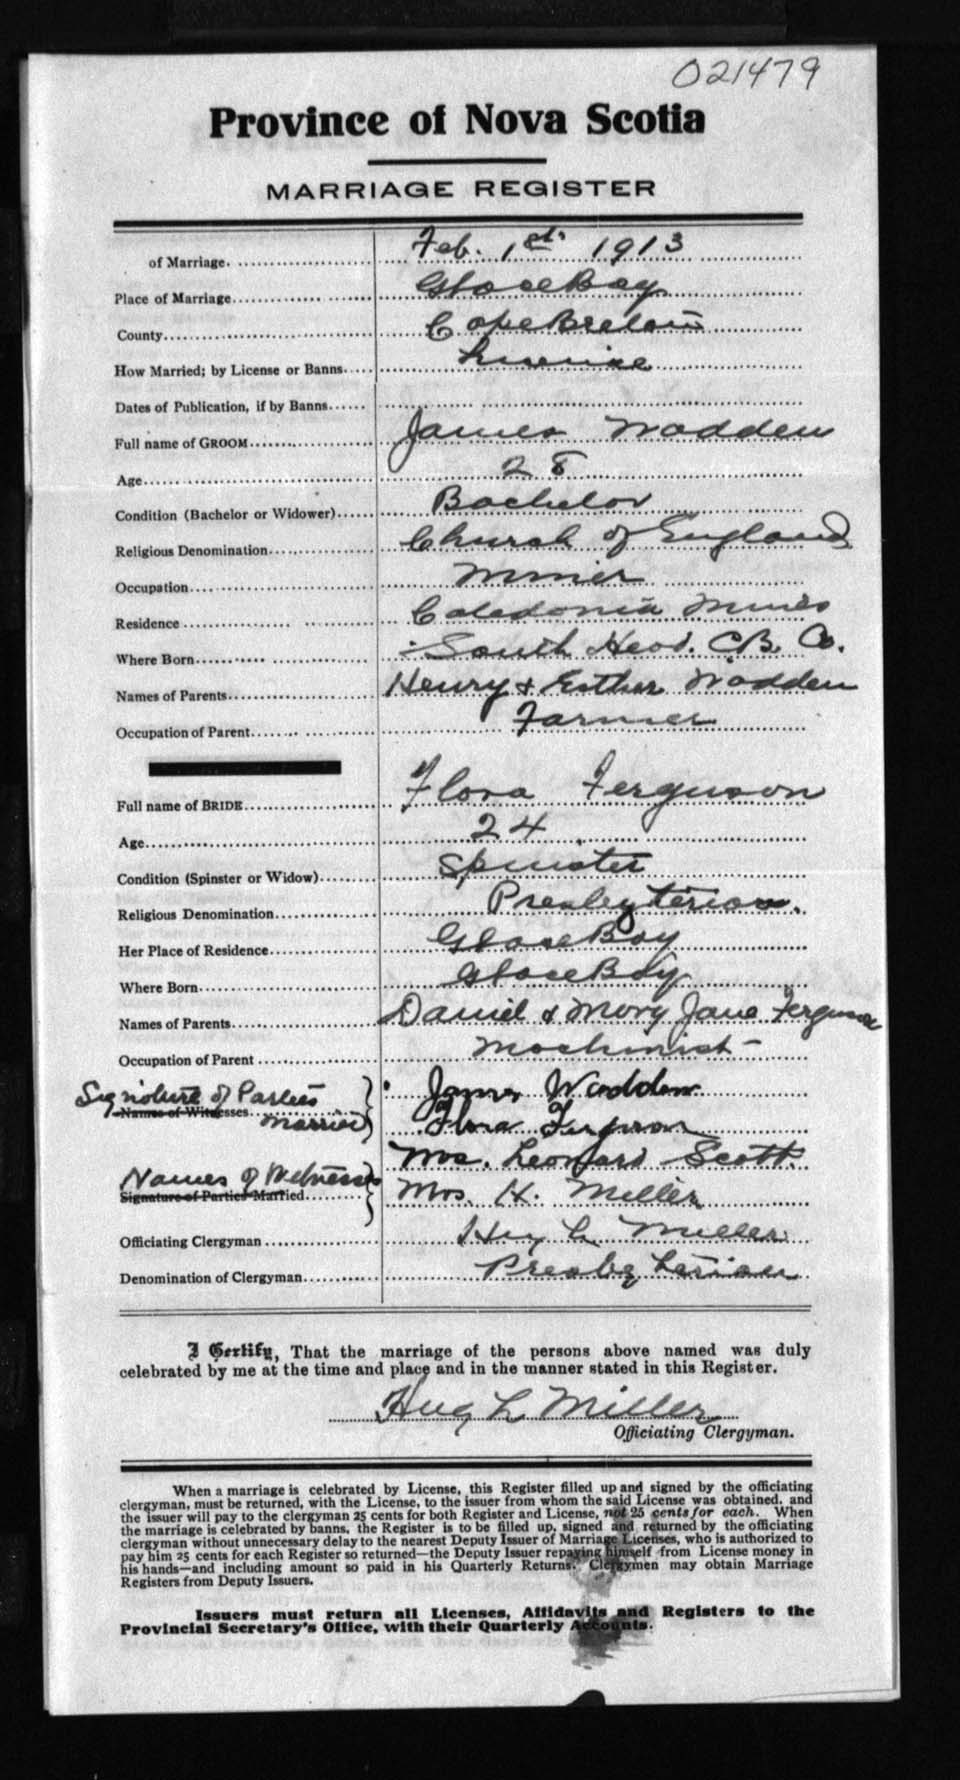 021479
Province of Nova Scotia
MARRIAGE REGISTER
of Marriage. Feb. 1st. 1913
Place of Marriage Glace Bay
County Cape Breton
How Married; by License or Banns License
Dates of Publication, if by Banns
Full name of GROOM James Wadden
Age 28
Condition (Bachelor or Widower) Bachelor
Religious Denomination Church of England
Occupation Miner
Residence Caledonia Mines
Where Born South Head. C.B. Co.
Names of Parents Henry & Esther Wadden
Occupation of Parent Farmer
Full name of BRIDE Flora Ferguson
Age 24
Condition (Spinster or Widow) Spinster
Religious Denomination Presbyterian.
Her Place of Residence Glace Bay
Where Born Glace Bay
Names of Parents Daniel & Mary Jane Ferguson
Occupation of Parent Machinist
Signature of Parties James Wadden
Names of Witnesses
Married Flora Ferguson
Mrs. Leonard Scott.
Names of Witnesses
Signature of Parties Married Mrs. H. Miller
Officiating Clergyman Hug L Miller
Denomination of Clergyman Presbyterian
I Certify, That the marriage of the persons above named was duly
celebrated by me at the time and place and in the manner stated in this Register.
Hug L Miller
Officiating Clergyman.
When a marriage is celebrated by License, this Register filled up and signed by the officiating
clergyman, must be returned, with the License, to the issuer from whom the said License was obtained, and
the issuer will pay to the clergyman 25 cents for both Register and License, not 25 cents for each. When
the marriage is celebrated by banns, the Register is to be filled up, signed and returned by the officiating
clergyman without unnecessary delay to the nearest Deputy Issuer of Marriage Licenses, who is authorized to
pay him 25 cents for each Register so returned—the Deputy Issuer repaying himself from License money in
his hands—and including amount so paid in his Quarterly Returns. Clergymen may obtain Marriage
Registers from Deputy Issuers.
Issuers must return all Licenses, Affidavits and Registers to the
Provincial Secretary's Office, with their Quarterly Accounts.